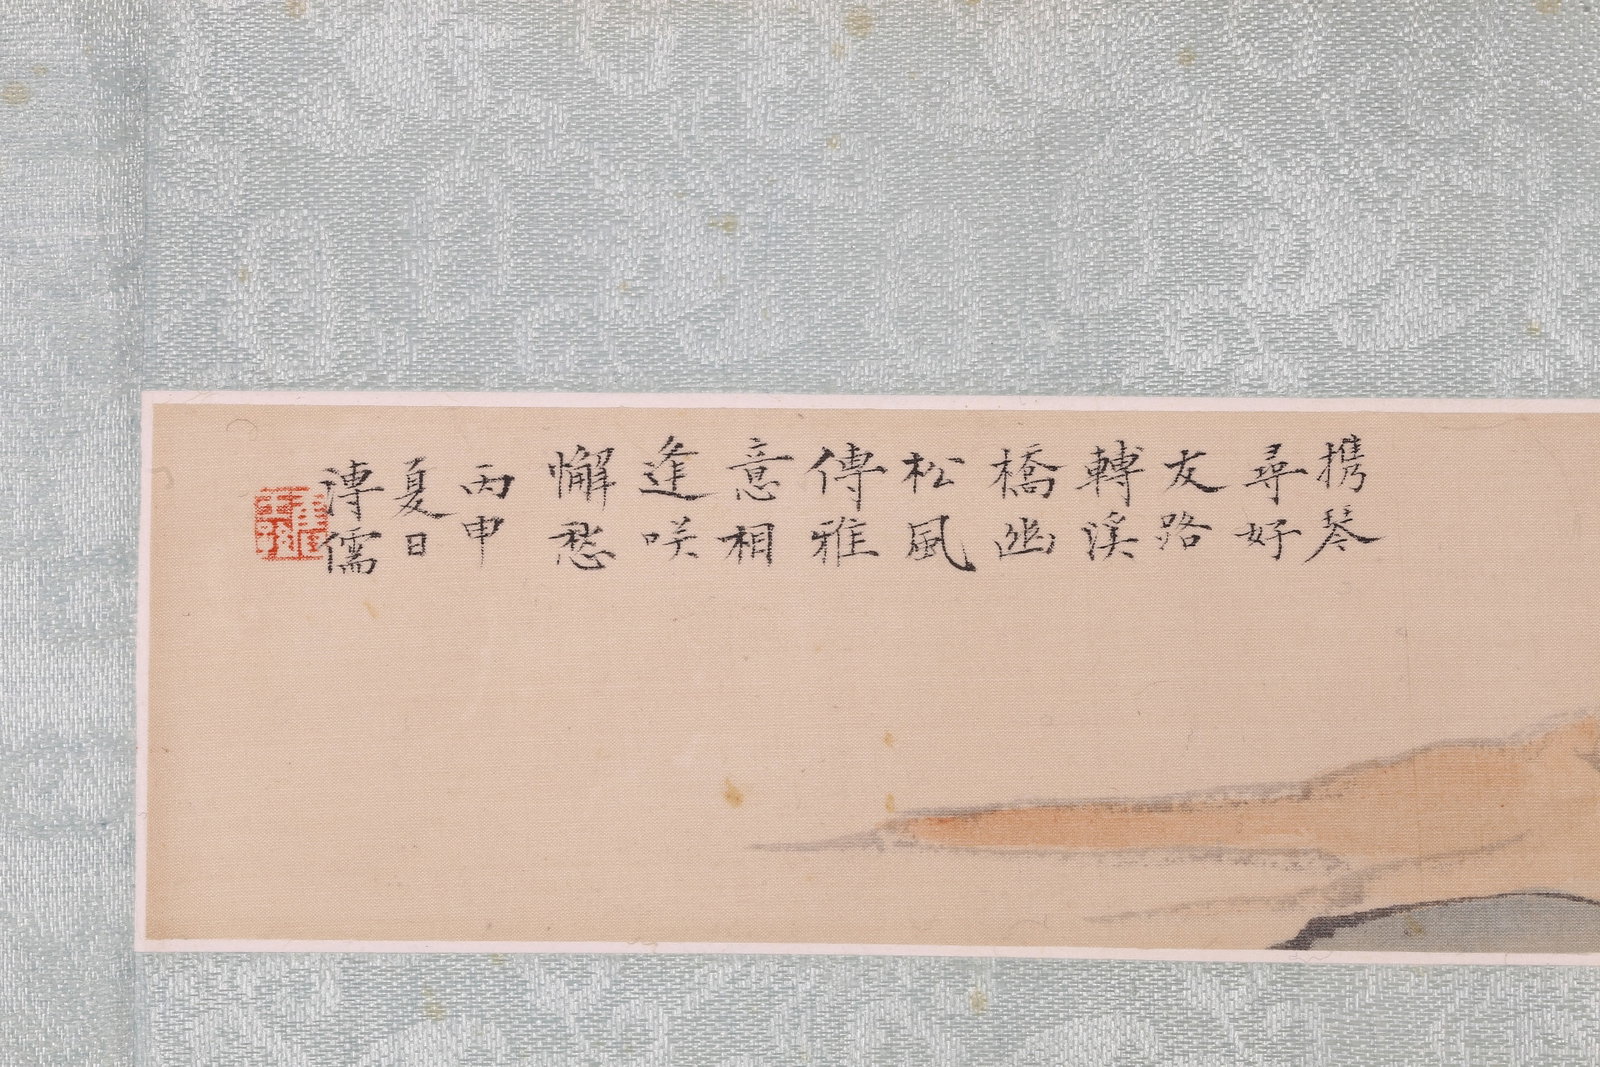 携琴
尋好
友路
轉溪
橋幽
松風
傳雅
意相
逢咲
懈愁
丙申
夏日
溥儒